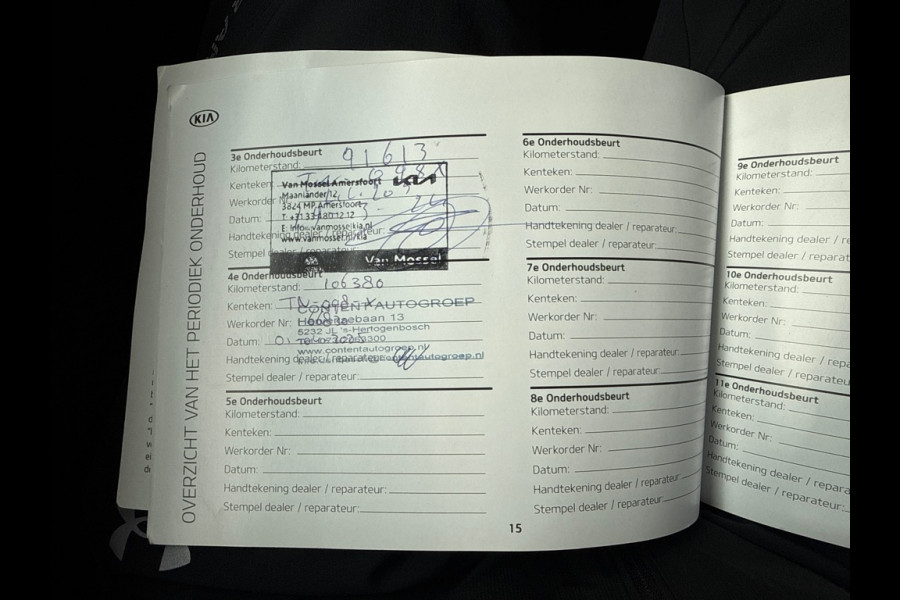 KIA
OVERZICHT VAN HET PERIODIEK ONDERHOUD
3e Onderhoudsbeurt
Kilometerstand: 91613
Kenteken:
Werkorder
Datum:
Handtekening dealer / reparateur:
Stempel dealer / reparateur:
Van Mossel Amersfoort KIA
Maanlander 12
3824 MP Amersfoort
T: +31 33 480 12 12
www.vanmossel.nl/kia
Van Mossel
4e Onderhoudsbeurt
Kilometerstand: 106380
Kenteken:
Werkorder Nr:
Datum:
Handtekening dealer / reparateur:
Stempel dealer / reparateur:
CONTENT AUTOGROEP
5232 JL 's-Hertogenbosch
www.contentautogroep.nl
5e Onderhoudsbeurt
Kilometerstand:
Kenteken:
Werkorder Nr:
Datum:
Handtekening dealer / reparateur:
Stempel dealer / reparateur:
6e Onderhoudsbeurt
Kilometerstand:
Kenteken:
Werkorder Nr:
Datum:
Handtekening dealer / reparateur:
Stempel dealer / reparateur:
7e Onderhoudsbeurt
Kilometerstand:
Kenteken:
Werkorder Nr:
Datum:
Handtekening dealer / reparateur:
Stempel dealer / reparateur:
8e Onderhoudsbeurt
Kilometerstand:
Kenteken:
Werkorder Nr:
Datum:
Handtekening dealer / reparateur:
Stempel dealer / reparateur:
15
9e Onderhoudsbeurt
Kilometerstand:
Kenteken:
Werkorder Nr:
Datum:
Handtekening dealer / r
Stempel dealer / reparat
10e Onderhoudsbeurt
Kilometerstand:
Kenteken:
Werkorder Nr:
Datum:
Handtekening dealer / repa
Stempel dealer / reparateu
11e Onderhoudsbeurt
Kilometerstand:
Kenteken:
Werkorder Nr:
Datum:
Handtekening dealer / repara
Stempel dealer / reparateur: